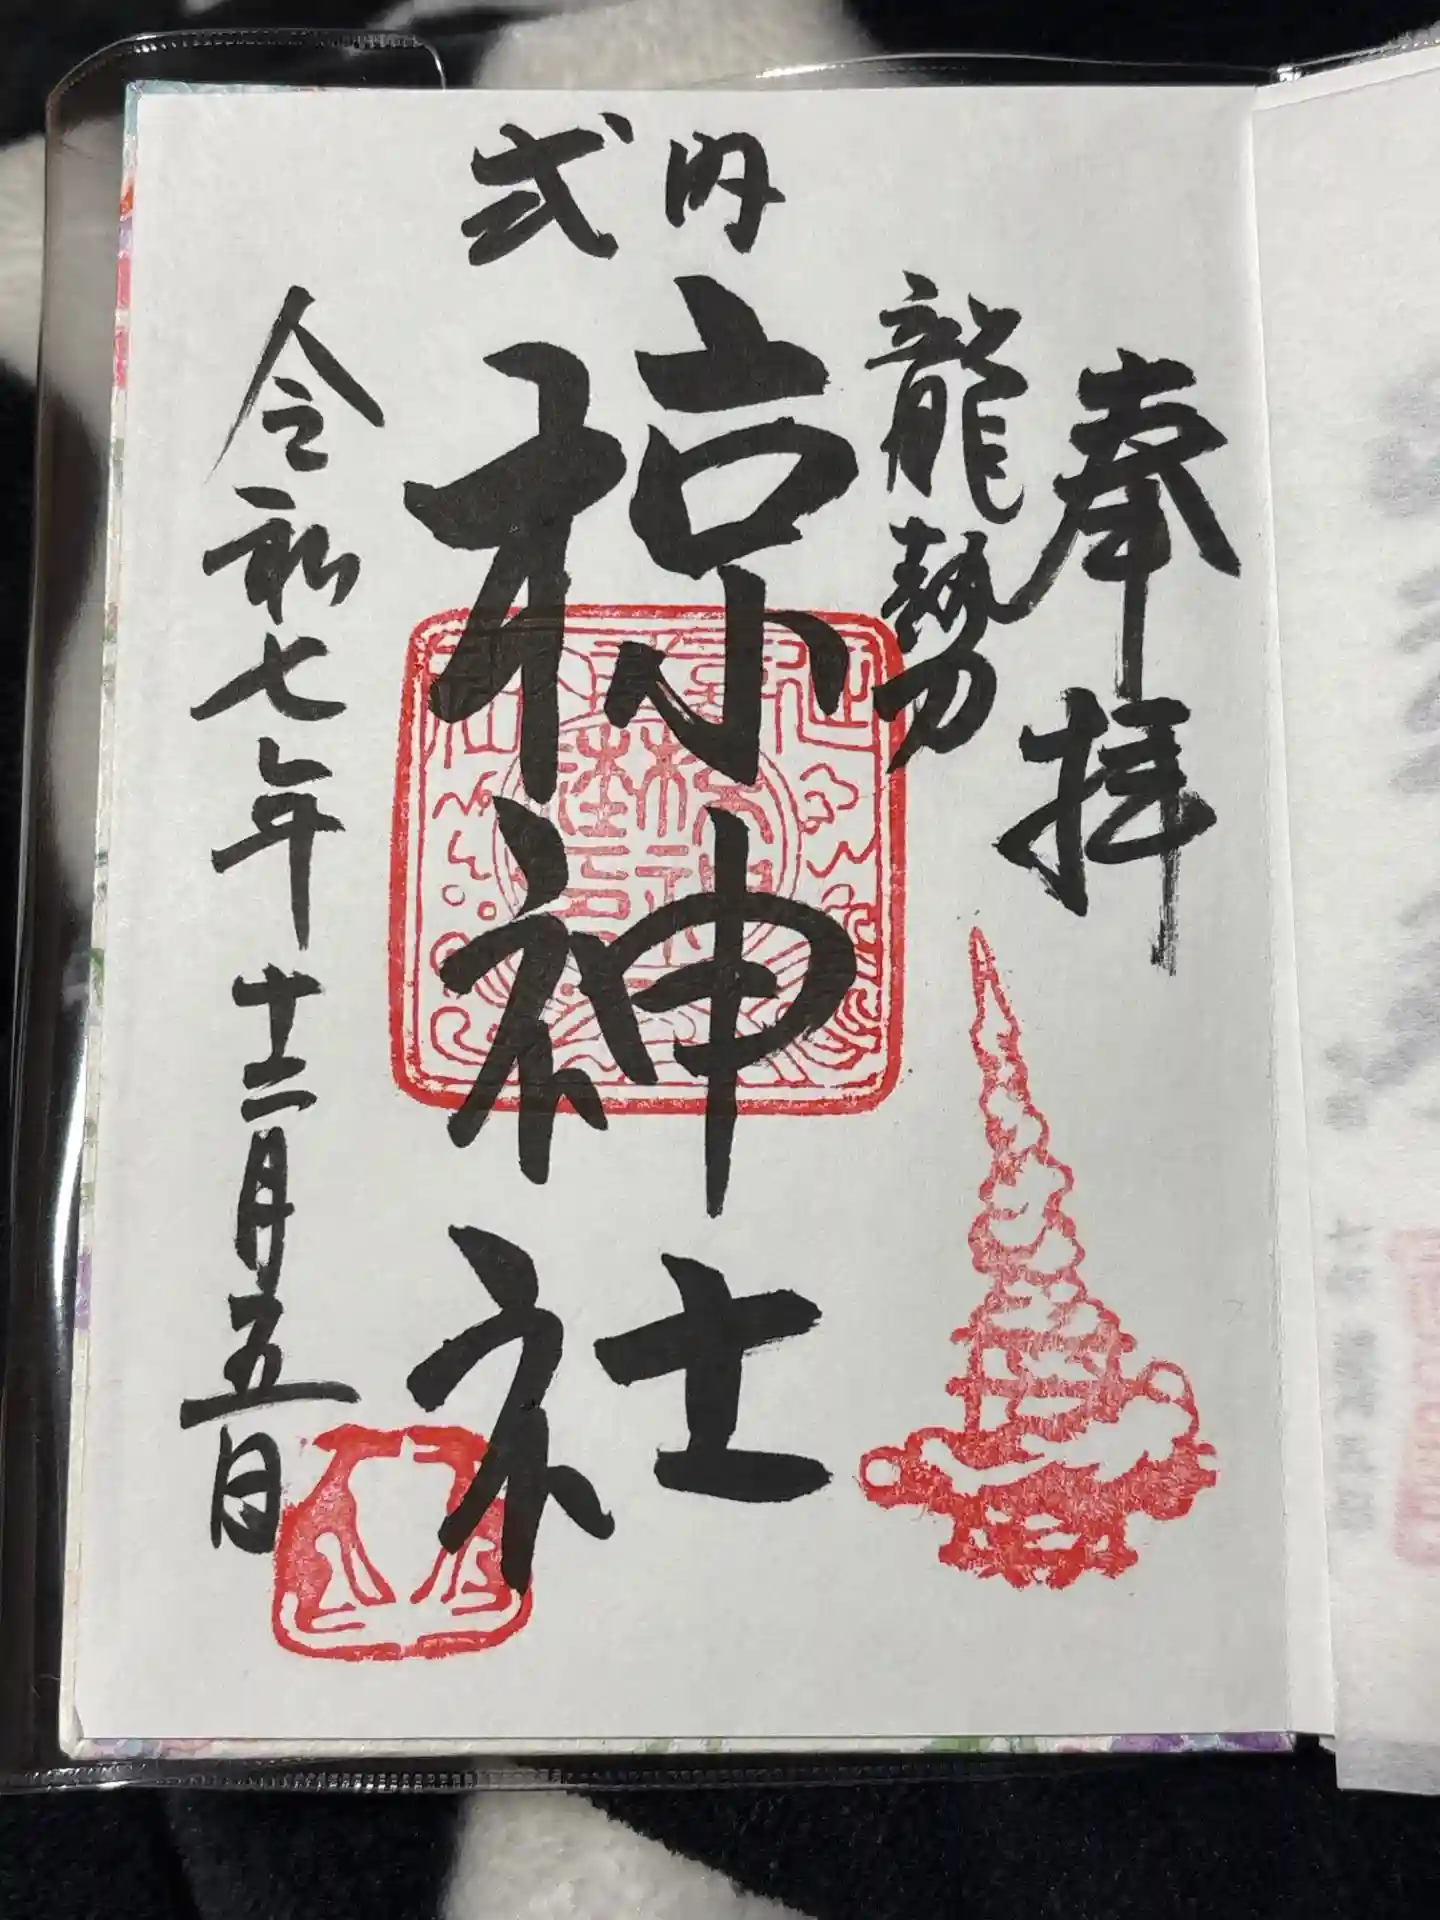 奉拝
龍勢
式内
椋神社
令和七年十二月五日